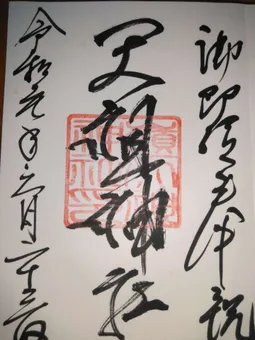 御即位奉祝
天祖神社
令和元年六月二十三日